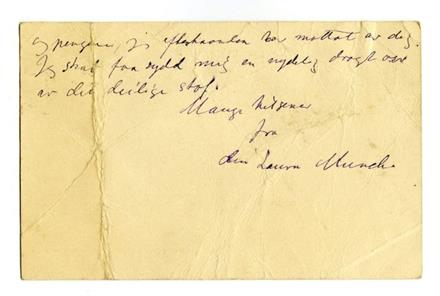 og pengene, jeg eftermiddag har mottat av deg.
Jeg skal faa sydd mig en nydelig dragt
av det deilige stof.
Mange hilsener
fra
din Laura Munch.